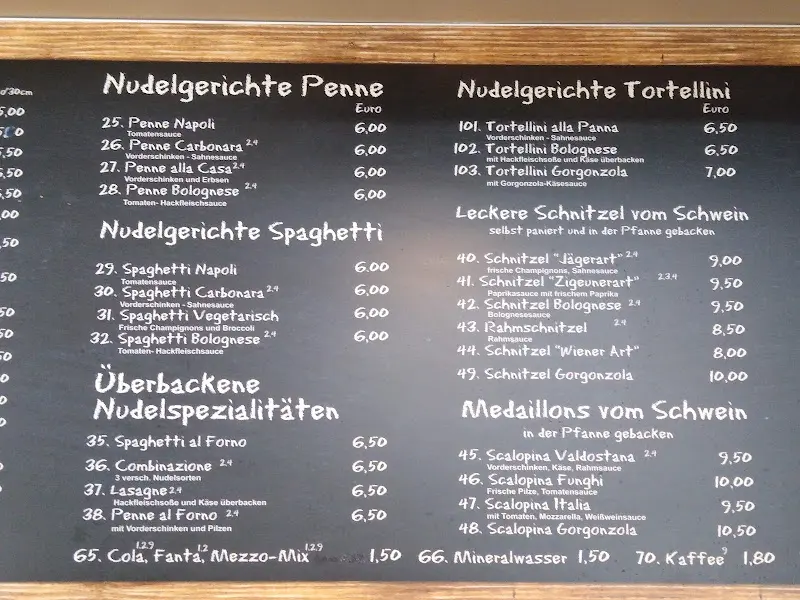 ø/30cm
5,00
5,50
5,50
5,50
,00
,50
50
50
50
50
Nudelgerichte Penne
Euro
25. Penne Napoli 6,00
Tomatensauce
26. Penne Carbonara 2,4 6,00
Vorderschinken - Sahnesauce
27. Penne alla Casa 2,4 6,00
Vorderschinken und Erbsen
28. Penne Bolognese 2,4 6,00
Tomaten- Hackfleischsauce
Nudelgerichte Spaghetti
29. Spaghetti Napoli 6.00
Tomatensauce
30. Spaghetti Carbonara 2,4 6,00
Vorderschinken - Sahnesauce
31. Spaghetti Vegetarisch 6,00
Frische Champignons und Broccoli
32. Spaghetti Bolognese 2,4 6,00
Tomaten- Hackfleischsauce
Überbackene
Nudelspezialitäten
35. Spaghetti al Forno 6,50
36. Combinazione 2,4 6,50
3 versch. Nudelsorten
37. Lasagne 2,4 6,50
Hackfleischsoße und Käse überbacken
38. Penne al Forno 2,4 6,50
mit Vorderschinken und Pilzen
Nudelgerichte Tortellini
Euro
101. Tortellini alla Panna 6,50
Vorderschinken - Sahnesauce
102. Tortellini Bolognese 6,50
mit Hackfleischsoße und Käse überbacken
103. Tortellini Gorgonzola 7,00
mit Gorgonzola-Käsesauce
Leckere Schnitzel vom Schwein
selbst paniert und in der Pfanne gebacken
40. Schnitzel "Jägerart" 2,4 9,00
frische Champignons, Sahnesauce
41. Schnitzel "Zigeunerart" 2,3,4 9,50
Paprikasauce mit frischem Paprika
42. Schnitzel Bolognese 2,4 9,50
Bolognesesauce
43. Rahmschnitzel 2,4 8,50
Rahmsauce
44. Schnitzel "Wiener Art" 8,00
49. Schnitzel Gorgonzola 10,00
Medaillons vom Schwein
in der Pfanne gebacken
45. Scalopina Valdostana 2,4 9,50
Vorderschinken, Käse, Rahmsauce
46. Scalopina Funghi 10,00
Frische Pilze, Tomatensauce
47. Scalopina Italia 9,50
mit Tomaten, Mozzarella, Weißweinsauce
48. Scalopina Gorgonzola 10,50
65. Cola, 1,2,9 Fanta, 1,2 Mezzo-Mix 1,2,9 1,50 66. Mineralwasser 1,50 70. Kaffee 9 1,80